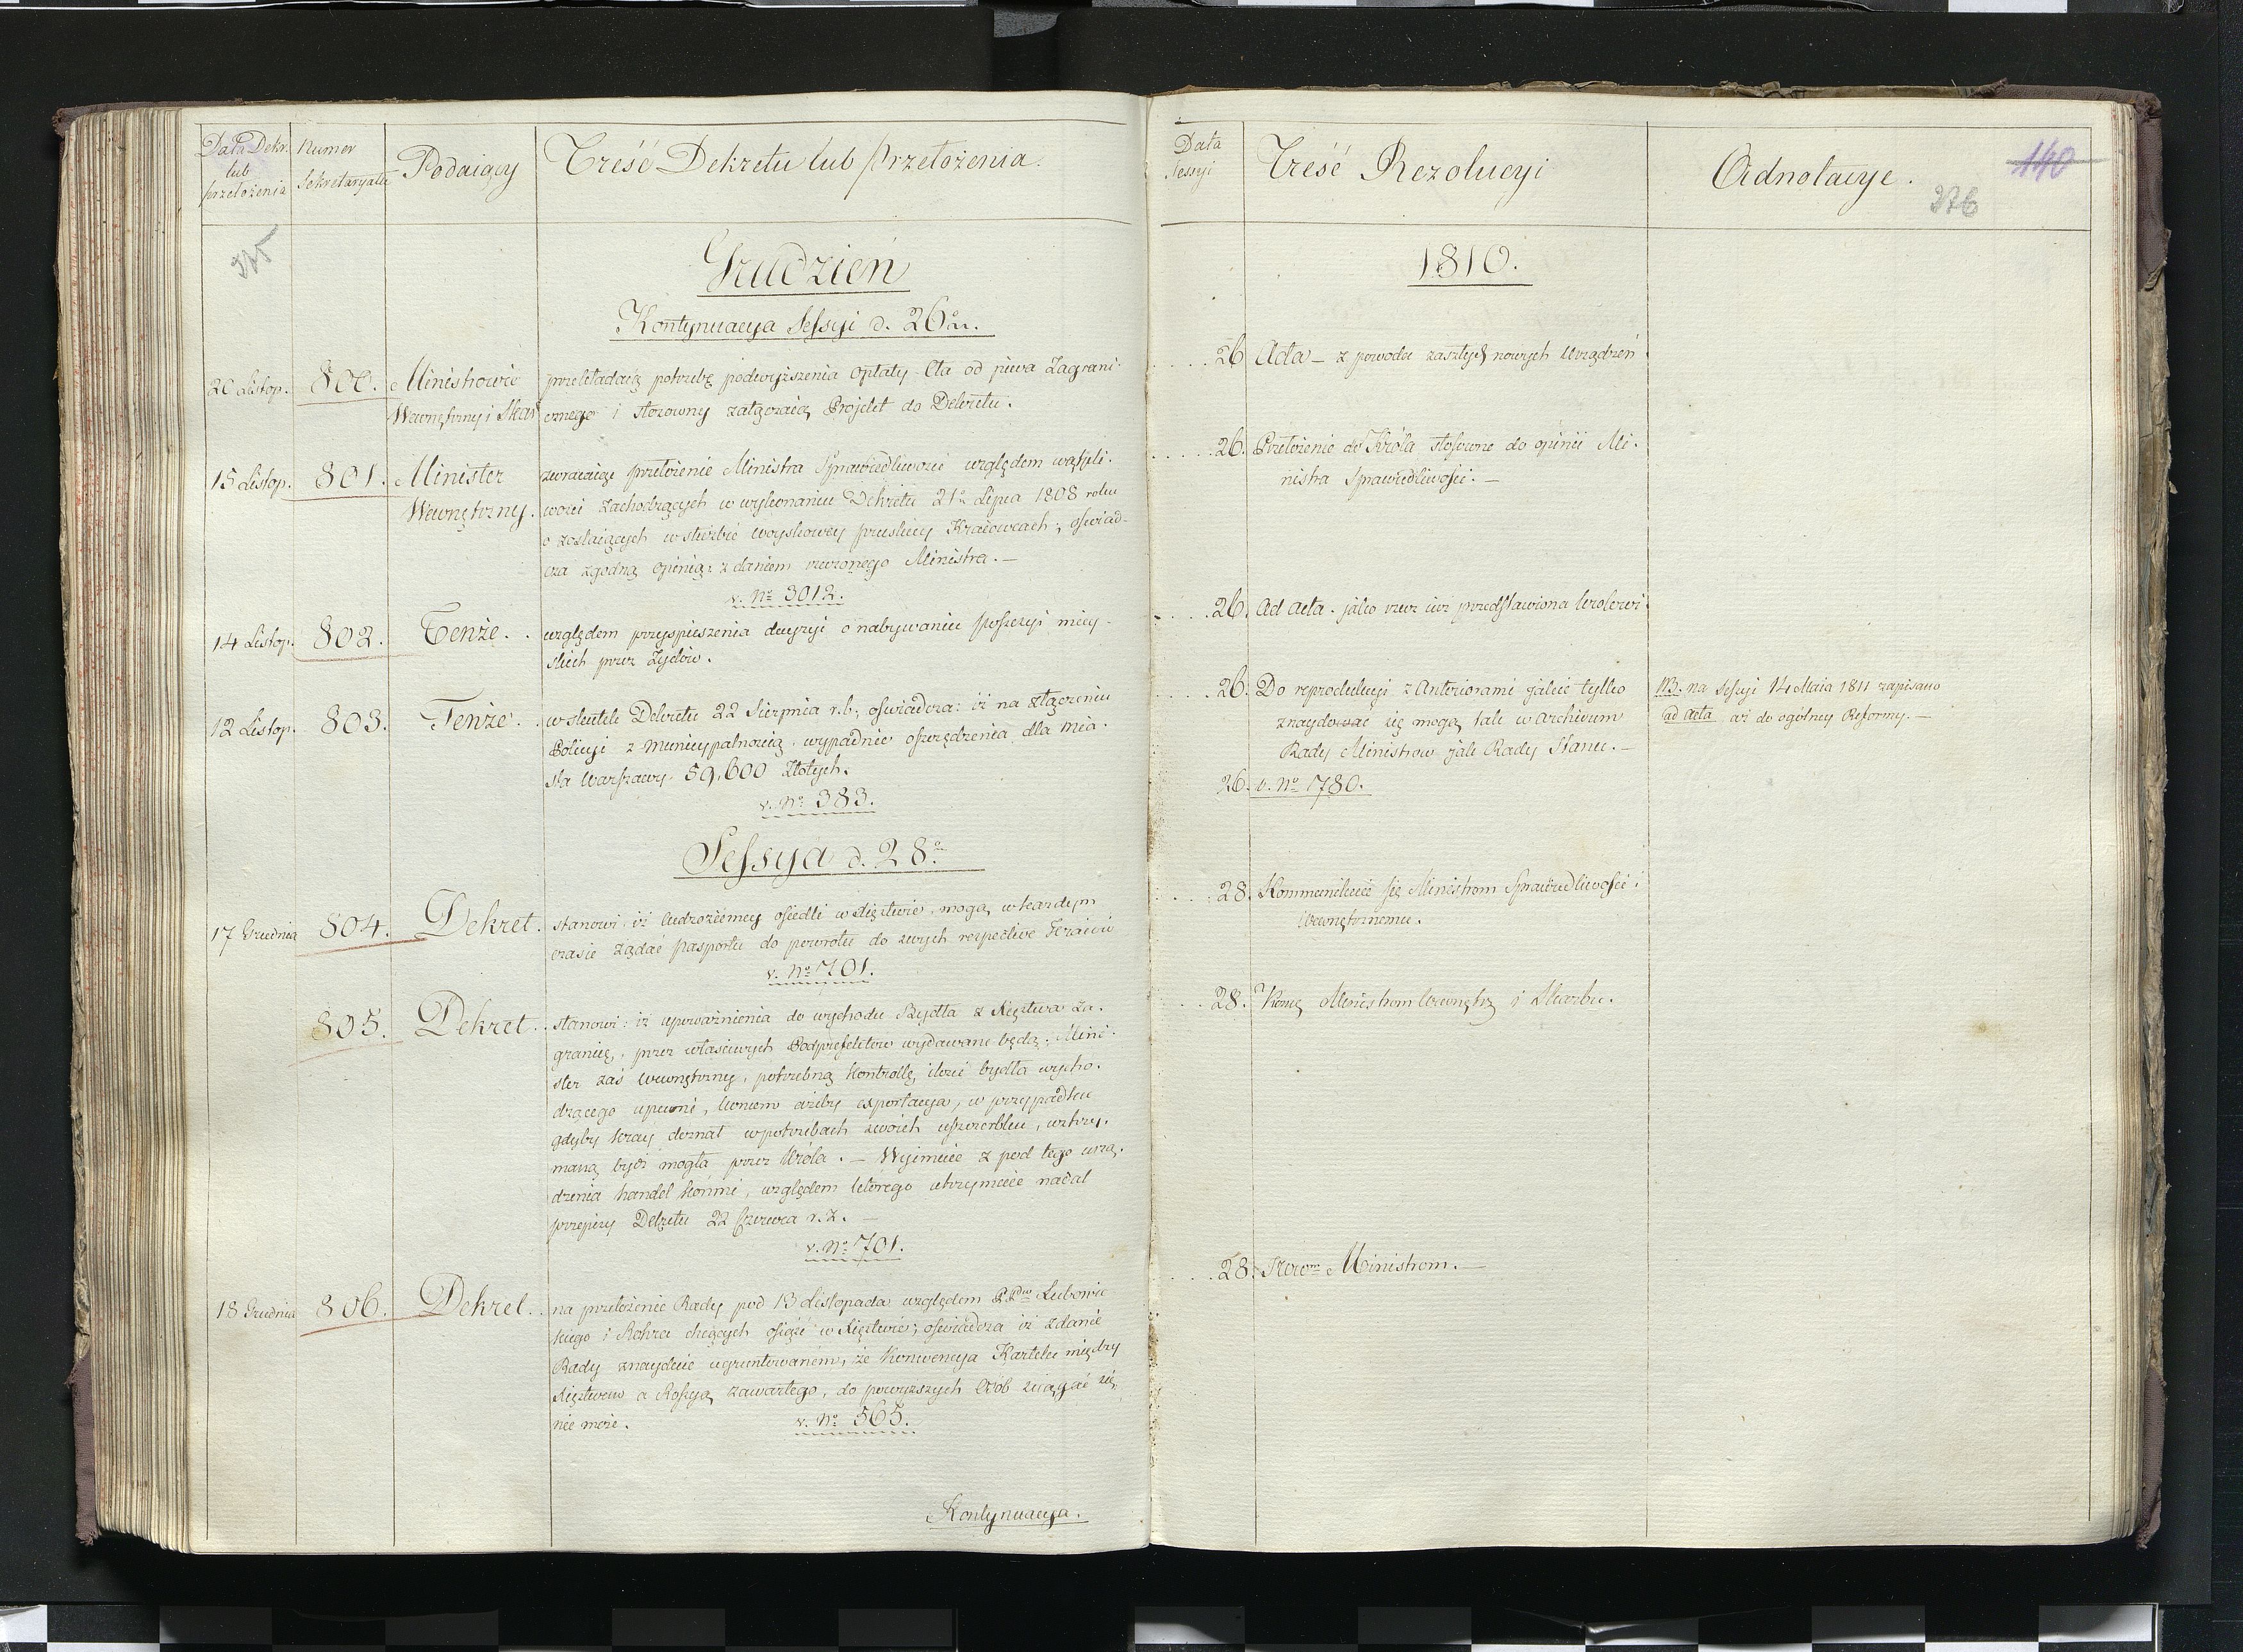 Data Dekr. lub przełożenia
Numer Sekretaryatu
Podaiący
Treść Dekretu lub przełożenia.
375
Grudzień
Kontynuacya Sessyi d. 26º
20 Listop. 800. Ministrowie przekładaią potrzebę podwyższenia opłaty Cła od piwa Zagrani-
Wewnętrzny i Skar. cznego i stosowny załączaią Projekt do Dekretu.
15 Listop. 801. Minister zwracaiąc przełożenie Ministra Sprawiedliwości względem wątpli-
Wewnętrzny. wości zachodzących w wykonaniu Dekretu 21º Lipca 1808 roku
o zostaiących w służbie woyskowey pruskiey Kraiowcach; oświad-
cza zgodną opinią z daniem rzeczonego Ministra. —
v. Nº 3012.
14 Listop. 802. Tenże. względem przyspieszenia decyzyi o nabywaniu possessyi miey-
skich przez Żydów.
12 Listop. 803. Tenże. w skutek Dekretu 22 Sierpnia r. b. oświadcza: iż na złączeniu
Policyi z Municypalnością wypadnie oszczędzenia dla Mia-
sta Warszawy 59,600 Złotych.
v. Nº 383.
Sessya d. 28º
17 Grudnia 804. Dekret. stanowi iż Cudzoziemcy osiedli w Xięztwie, mogą w każdym
czasie żądać Pasportu do powrotu do swych respective Kraiów
v. Nº 701.
805. Dekret. stanowi: iż upoważnienia do wychodu Bydła z Xięztwa za-
granicę, przez właściwych Podprefektów wydawane będą; Mini-
ster zaś Wewnętrzny, potrzebną kontrollę, ilości bydła wycho-
dzącego upewni, koniem ażeby exportacya, w przypadku
gdyby kray doznał w potrzebach swoich uszczerbku, wstrzy-
maną bydź mogła przez Króla. — Wyimuie z pod tego urzą-
dzenia handel końmi, względem którego utrzymuie nadal
przepisy Dekretu 22 Czerwca r. z. —
v. Nº 701.
18 Grudnia 806. Dekret. na przełożenie Rady pod 13 Listopada względem PPów Lubowic-
kiego i Rohra chcących osiąść w Xięztwie; oświadcza iż zdanie
Rady znayduie ugruntowanem, że konwencya Kartelu między
Xięztwem a Rossyą zawartego, do powyższych osób ściągać się
nie może. v. Nº 565.
Kontynuacya.
Data Sessyi
Treść Rezolucyi
Adnotacye.
140
376
1810.
26 Acta — z powodu zaszłych nowych Urządzeń
26. Przełożenie do Króla stosowne do opinii Mi-
nistra Sprawiedliwości. —
26. Ad acta. jako rzecz iuż przedstawiona Królowi.
26. Do reprodukcyi z Anteriorami jakie tylko
znaydować się mogą tak w Archivum
Rady Ministrów jak Rady Stanu. —
NB. na Sessyi 14 Maia 1811 zapisano
ad acta aż do ogólney Reformy. —
26. v. Nº 1780.
28. Kommunikuie się Ministrom Sprawiedliwości i
Wewnętrznemu.
28. Kom. Ministrom Wewnętrz i Skarbu.
28. Ministrom. —